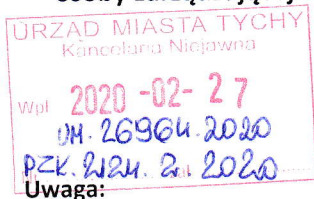 URZĄD MIASTA TYCHY
Kancelaria Niejawna
Wpł. 2020 -02- 27
UM. 26964.2020
PZK. 2124. 2. 2020
Uwaga: